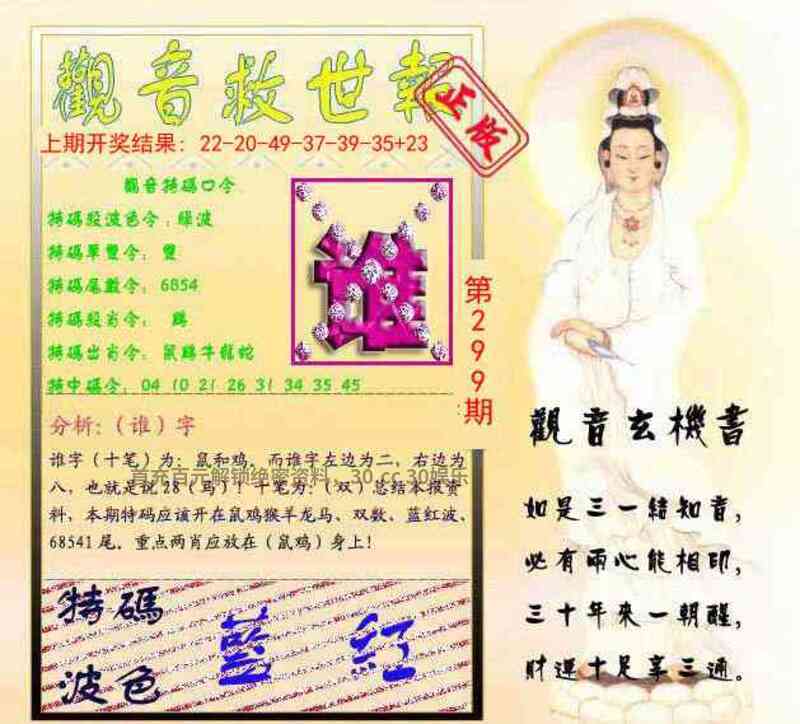 觀音救世報
正版
上期开奖结果：22-20-49-37-39-35+23
觀音特碼口令
特碼殺波色令：綠波
特碼單雙令：雙
特碼尾數令：6854
特碼殺肖令：
特碼出肖令：鼠雞牛龍蛇
特中碼令：04 10 21 26 31 34 35 45
谁
第299期
分析：（谁）字
谁字（十笔）为：鼠和鸡，而谁字左边为二，右边为
八，也就是说28（马）！十笔为：（双）总结本报资
料，本期特码应该开在鼠鸡猴羊龙马、双数、蓝红波、
68541尾，重点两肖应放在（鼠鸡）身上！
首充百元解锁绝密资料：30.cc 30娱乐
特碼
波色
藍 紅
觀音玄機書
如是三一結知音，
必有兩心能相印，
三十年來一朝醒，
財運十足享三通。